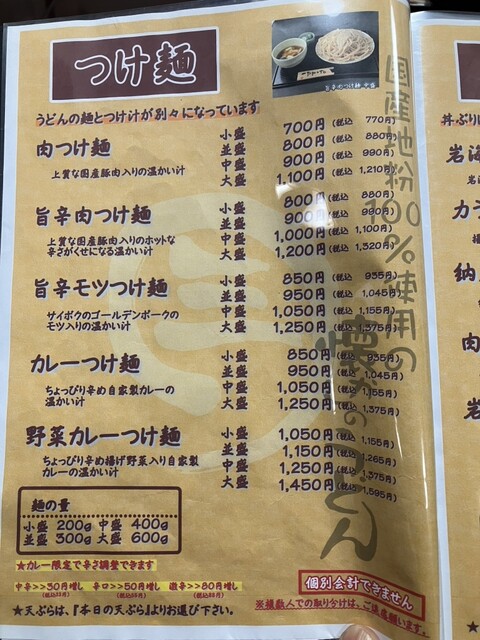 つけ麺
旨辛肉つけ麺 中盛
うどんの麺とつけ汁が別々になっています
肉つけ麺
上質な国産豚肉入りの温かい汁
小盛 700円(税込 770円)
並盛 800円(税込 880円)
中盛 900円(税込 990円)
大盛 1,100円(税込 1,210円)
旨辛肉つけ麺
上質な国産豚肉入りのホットな
辛さがくせになる温かい汁
小盛 800円(税込 880円)
並盛 900円(税込 990円)
中盛 1,000円(税込 1,100円)
大盛 1,200円(税込 1,320円)
旨辛モツつけ麺
サイボクのゴールデンポークの
モツ入りの温かい汁
小盛 850円(税込 935円)
並盛 950円(税込 1,045円)
中盛 1,050円(税込 1,155円)
大盛 1,250円(税込 1,375円)
カレーつけ麺
ちょっぴり辛め自家製カレーの
温かい汁
小盛 850円(税込 935円)
並盛 950円(税込 1,045円)
中盛 1,050円(税込 1,155円)
大盛 1,250円(税込 1,375円)
野菜カレーつけ麺
ちょっぴり辛め揚げ野菜入り自家製
カレーの温かい汁
小盛 1,050円(税込 1,155円)
並盛 1,150円(税込 1,265円)
中盛 1,250円(税込 1,375円)
大盛 1,450円(税込 1,595円)
国産地粉100%使用の
うどん
麺の量
小盛 200g 中盛 400g
並盛 300g 大盛 600g
★カレー限定で辛さ調整できます
中辛>>30円増し 辛口>>50円増し 激辛>>80円増し
(税込33円) (税込55円) (税込88円)
★天ぷらは、『本日の天ぷら』よりお選び下さい。
個別会計できません
※複数人での取り分けは、ご遠慮願います。
丼ぶり
岩海
カラ
納
肉
岩